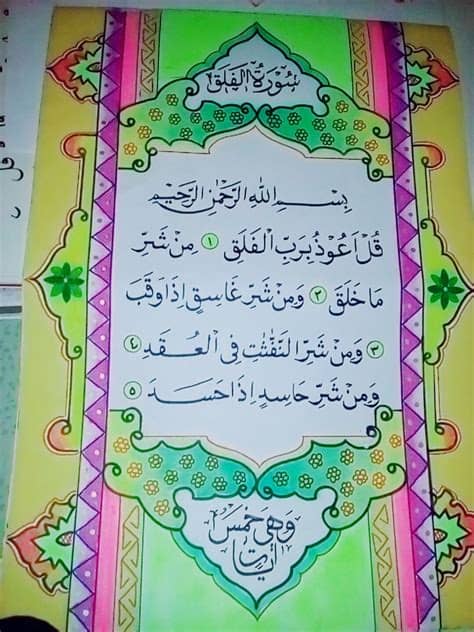 سُوْرَةُ الْفَلَق
بِسْـــمِ اللهِ الرَّحْمٰنِ الرَّحِيْمِ
قُلْ اَعُوْذُ بِرَبِّ الْفَلَقِ ١ مِنْ شَرِّ
مَا خَلَقَ ٢ وَمِنْ شَرِّ غَاسِقٍ اِذَا وَقَبَ
٣ وَمِنْ شَرِّ النَّفّٰثٰتِ فِى الْعُقَدِ ٤
وَمِنْ شَرِّ حَاسِدٍ اِذَا حَسَدَ ٥
وَهِيَ خَمْسُ
اٰيَات